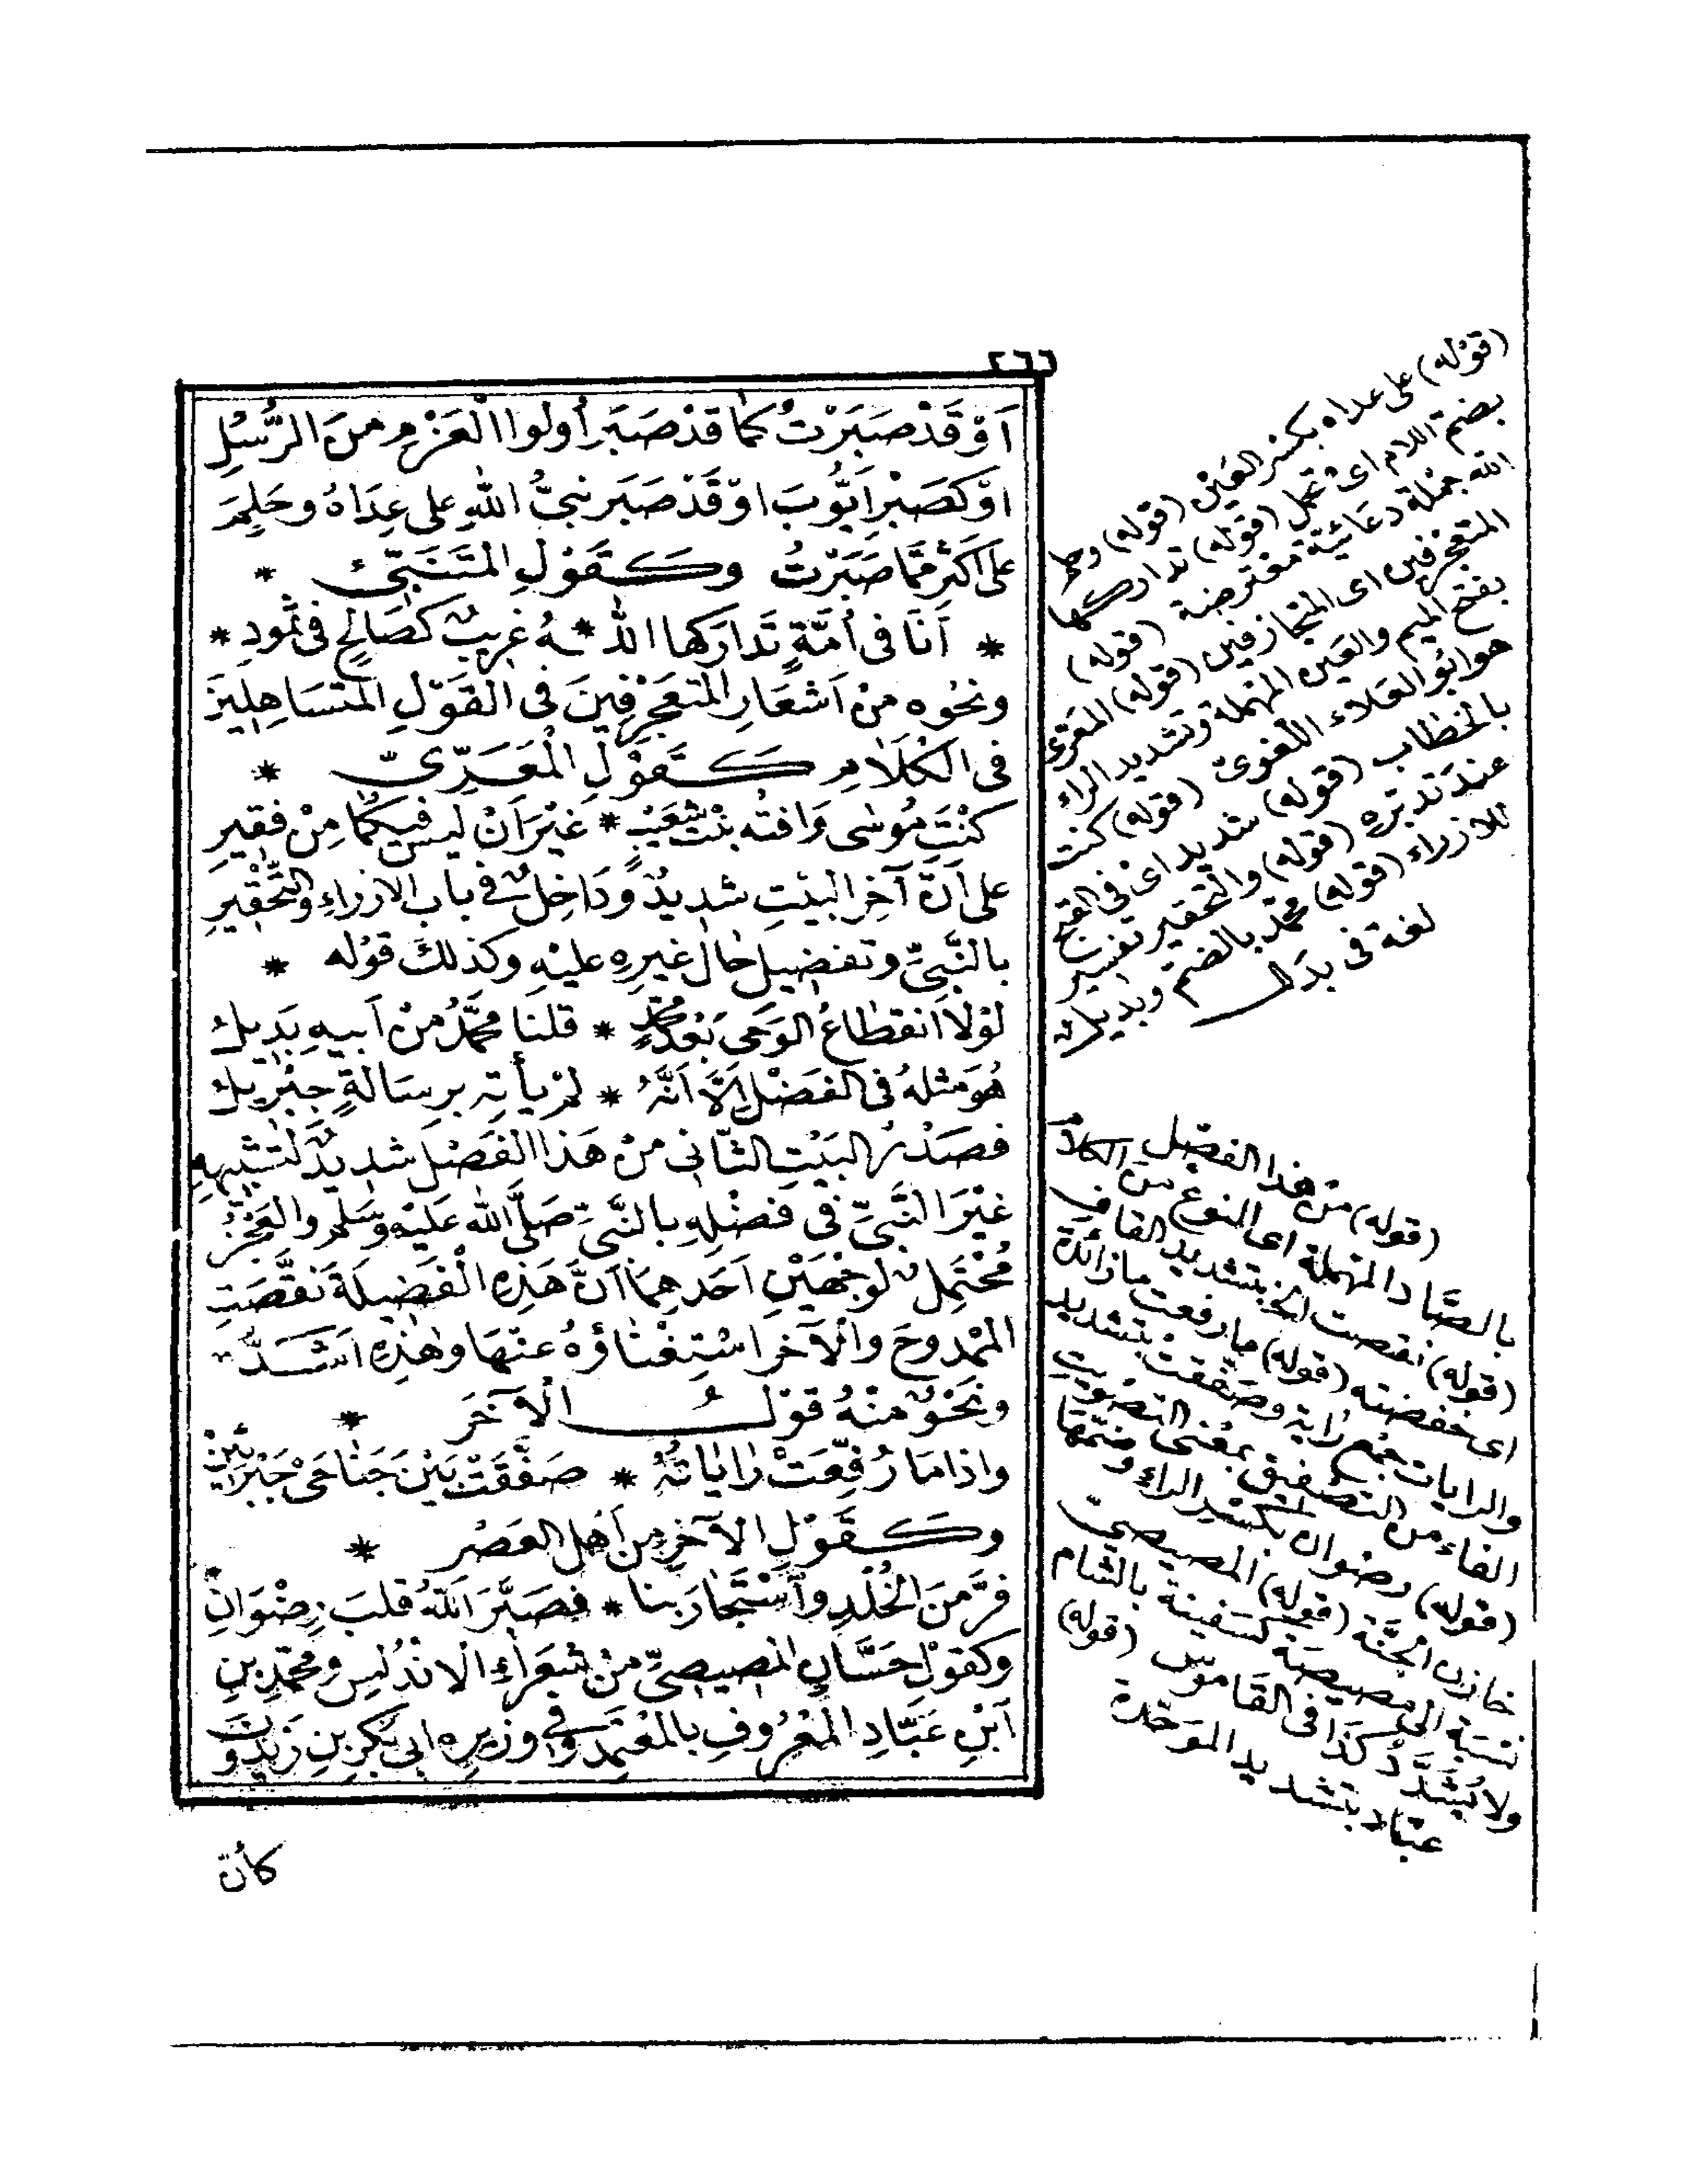 ٢٦٦
اَوْ قَدْ صَبَرْتُ كَمَا قَدْ صَبَرَ اُولوا الْعَزْمِ مِنَ الرُّسُلِ
اوْ كَصَبْرِ اَيُّوبَ اوْ قَدْ صَبَرَ نبىُّ اللهِ على عِدَاهُ وحَلِمَ
عَلَى اَكْثَرَ مِمَّا صَبَرْتُ وكَقَوْلِ المُتَنَبِّىء *
* اَنَا فى اُمَّةٍ تَدَارَكها اللّٰ * ـهُ غريبٌ كَصَالِحٍ فى ثَمُودِ *
ونحْوه مِنْ اَشعَارِ المُتَعَجْرِفِينَ فى القَوْلِ المُتَسَاهِلِينَ
فى الكَلَامِ كَقَوْلِ المَعَرِّىّ *
كُنْتَ مُوسٰى وَافتْه بِنْتُ شُعَيْبٍ * غَيْرَ اَنْ ليسَ فيكُمَا مِنْ فقيرِ
على اَنَّ آخِرَ البَيْتِ شدِيدٌ وَدَاخِلٌ فى باب الازراءِ والتَّحْقيرِ
بالنَّبِىِّ وتفضِيلِ حَالِ غيرِهِ عليْهِ وكذلِكَ قوْله *
لوْلَا انقطاعُ الوَحىِ بَعْدَ مُحَمَّدٍ * قلنَا مُحَمَّدُ مِنْ اَبيهِ بَدِيلُ
هُوَ مثلهُ فى الفَضْلِ اِلَّا اَنَّهُ * لمْ يأتهِ بِرِسَالةٍ جِبْرِيلُ
فصَدْرُ البَيْتِ الثَّانى مِنْ هَذا الفَصْلِ شديدٌ لتَشْبِيههِ
غَيْرَ النَّبىِّ فى فَضْلِهِ بالنَّبىِّ صَلَّى الله عَلَيْهِ وسَلم والعَجُزُ
مُحْتَمِلٌ لوَجْهَيْنِ اَحَدهِمَا اَنَّ هَذِهِ الْفَضيلَةَ نَقَّصَتِ
المَمْدوحَ والْآخر اسْتِغْنَاؤهُ عنْهَا وهٰذِهِ اَشَدُّ
ونَحْوٌ مِنْهُ قوْلُ الْآخَرِ *
واِذا مَا رُفِّعَتْ رَايَاتُهُ * صَفَّقَتْ بَيْنَ جَنَاحَىْ جَبْرَئِينْ
وكَقَوْلِ الآخَرِ مِن اَهْلِ العَصْرِ *
فَرَّ مِنَ الخُلْدِ وَاسْتَجَارَ بنا * فصَبَّرَ اللهُ قلبَ رِضْوَانِ
وكقوْلِ حَسَّان المصيصىِّ مِنْ شُعَرَاءِ الاندُلسِ ومحمّدِ بنِ
اَبْنِ عَبَّادِ المَعْرُوفِ بالمُعْتَمِدِ وفى وزيرِهِ ابى بَكْرِ بنِ زَيْدُونَ
كأنّ
(قوله) على عداه بكسر العين (قوله) وحلم
بضم اللام اى تحمل (قوله) تداركها
الله جملة دعائية معترضة (قوله)
المتعجرفين اى المتجازفين (قوله) المعرى
بفتح الميم والعين المهملة وتشديد الراء
هو ابو العلاء اللغوى (قوله) كنت
بالخطاب (قوله) شديد اى فى القبح
عند تدبره (قوله) والتحقير تفسير
للازراء (قوله) محمد بالضم وبديل
لغة فى بدل
(قوله) من هذا الفصل
بالصاد المهملة اى النوع من الكلام
(قوله) نقصت الخ بتشديد القاف
اى خفضته (قوله) ما رفعت ما زائدة
والرايات جمع راية وصفقت بتشديد
الفاء من التصفيق بمعنى التصويت
(قوله) رضوان بكسر الراء وضمها
خازن الجنة (قوله) المصيصى
نسبة الى مصيصة كسفينة بالشام
ولا تشدد كذا فى القاموس (قوله)
عباد بتشديد الموحدة